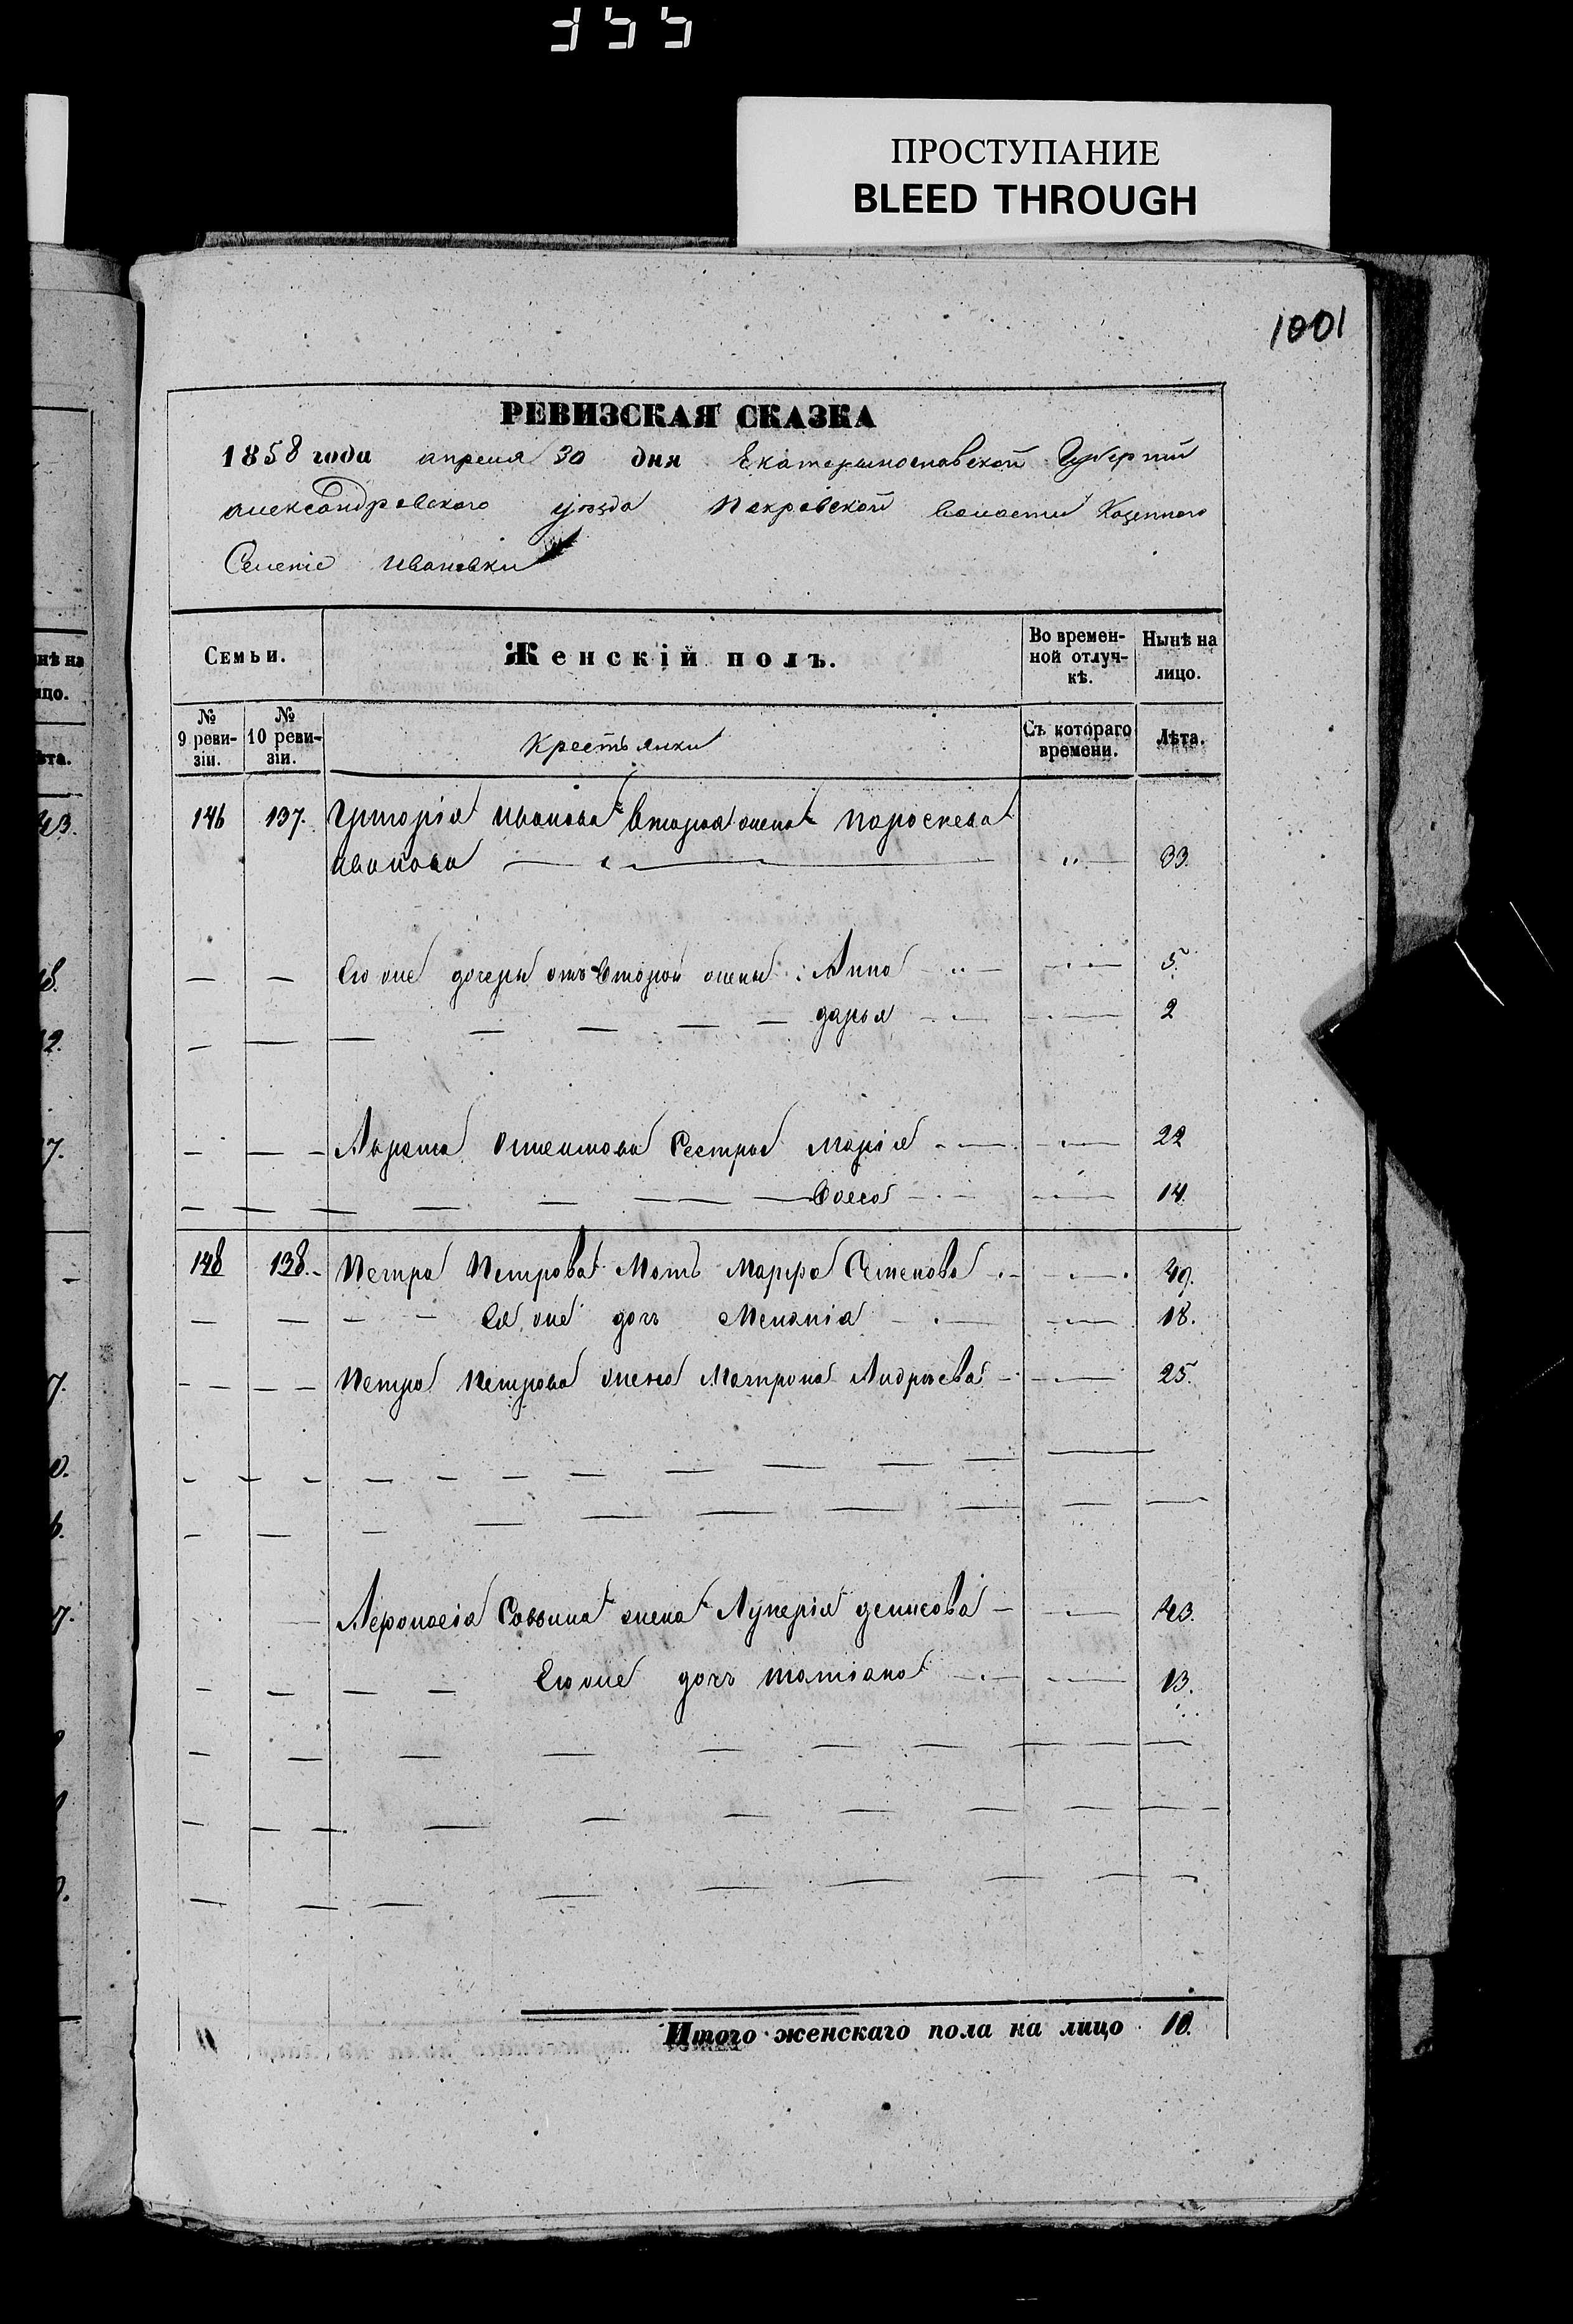 355
ПРОСТУПАНИЕ
BLEED THROUGH
1001
РЕВИЗСКАЯ СКАЗКА
1858 года апреля 30 дня Екатериносновской Губерний
александровского уѣзда Покровской волости Казенного
Селеніе Ивановки
Семьи. Женскій полъ. Во временной отлучкѣ. Нынѣ на лицо.
№ 9 ревизіи. № 10 ревизіи. Крестьянки Съ котораго времени. Лѣта.
146 137. Григорія Иванова Вторая жена Пороскева
Иванова 33.
Его же дочери отъ Второй жены: Анна 5.
дарья 2
сестра Марія 22
14.
148 138. Петра Петрова Мать Марфа Семенова 49.
Ея же дочь Меланія 18.
Петра Петрова жена Матрона Андреева 25.
Афонасія Саввина жена Лукерія денисова 43.
Его же дочь татіана 13.
Итого женскаго пола на лицо 10.